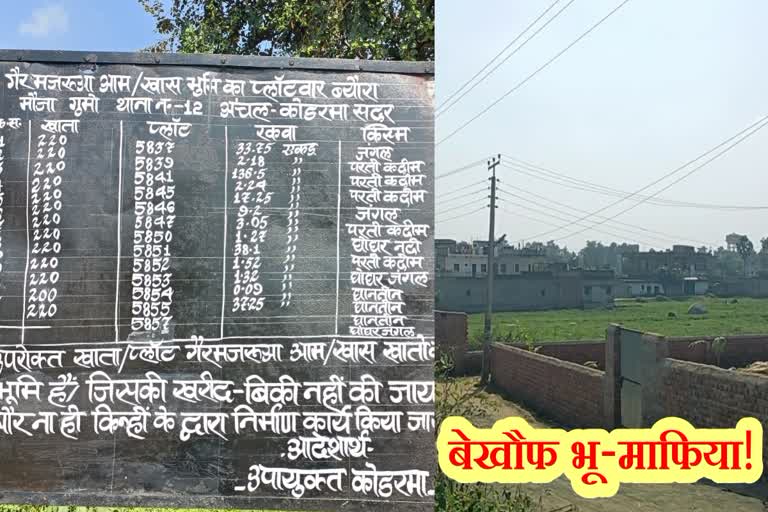 गैर मजरूआ आम/खास भूमि का प्लॉटवार ब्यौरा
मौजा गुमो थाना न.-12 अंचल-कोडरमा सदर
क्र.स. खाता प्लॉट रकवा किस्म
220 5837 33.75 एकड़ जंगल
220 5839 2.18 " परती कदीम
220 5841 136.5 " परती कदीम
220 5845 2.24 " परती कदीम
220 5846 17.25 " जंगल
220 5847 9.2 " परती कदीम
220 5850 3.05 " घोघर नदी
220 5851 1.27 " परती कदीम
220 5852 38.1 " घोघर जंगल
220 5853 1.52 " धानतीन
220 5854 1.32 " धानतीन
200 5855 0.09 " धानतीन
220 5857 37.25 " घोघर जंगल
उपरोक्त खाता/प्लॉट गैरमजरूआ आम/खास खाते
भूमि है, जिसकी खरीद-बिक्री नहीं की जाय
और ना ही किन्हीं के द्वारा निर्माण कार्य किया जाय
-आदेशार्थ-
-उपायुक्त कोडरमा-
बेखौफ भू-माफिया!